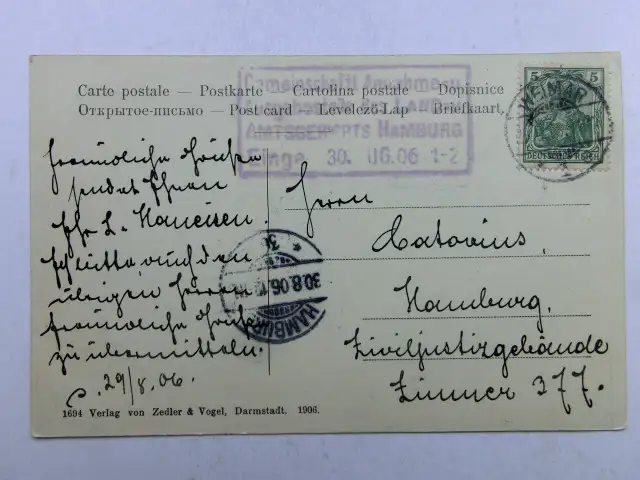 Carte postale — Postkarte — Cartolina postale — Dopisnice
Открытое-письмо — Post card — Levelező-Lap — Briefkaart.
Gemeinschaftl Annahme
AMTSGERICHTS HAMBURG
Einge 30. UG.06 1-2
5 5
DEUTSCHES REICH
WEIMAR
Freundliche Grüße
sendet Ihnen
Ihr L.
Ich bitte auch den
übrigen Herren
freundliche Grüße
zu übermitteln.
29/8.06.
Herrn
Hamburg.
Ziviljustizgebäude
Zimmer 377.
30.8.06.
HAMBURG
1694 Verlag von Zedler & Vogel, Darmstadt. 1906.